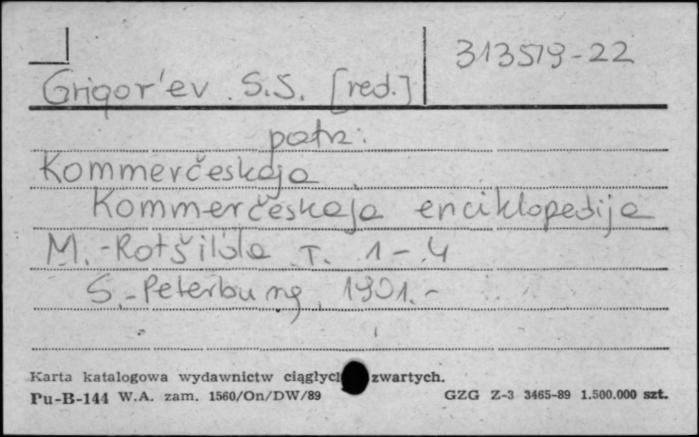 313519-22
Grigor'ev S.S. [red.]
patrz:
Kommerčeskaja
Kommerčeskaja enciklopedija
M.-Rotšilda T. 1-4
S.-Peterburg, 1901.-
Karta katalogowa wydawnictw ciągłych zwartych.
Pu-B-144 W.A. zam. 1560/On/DW/89 GZG Z-3 3465-89 1.500.000 szt.